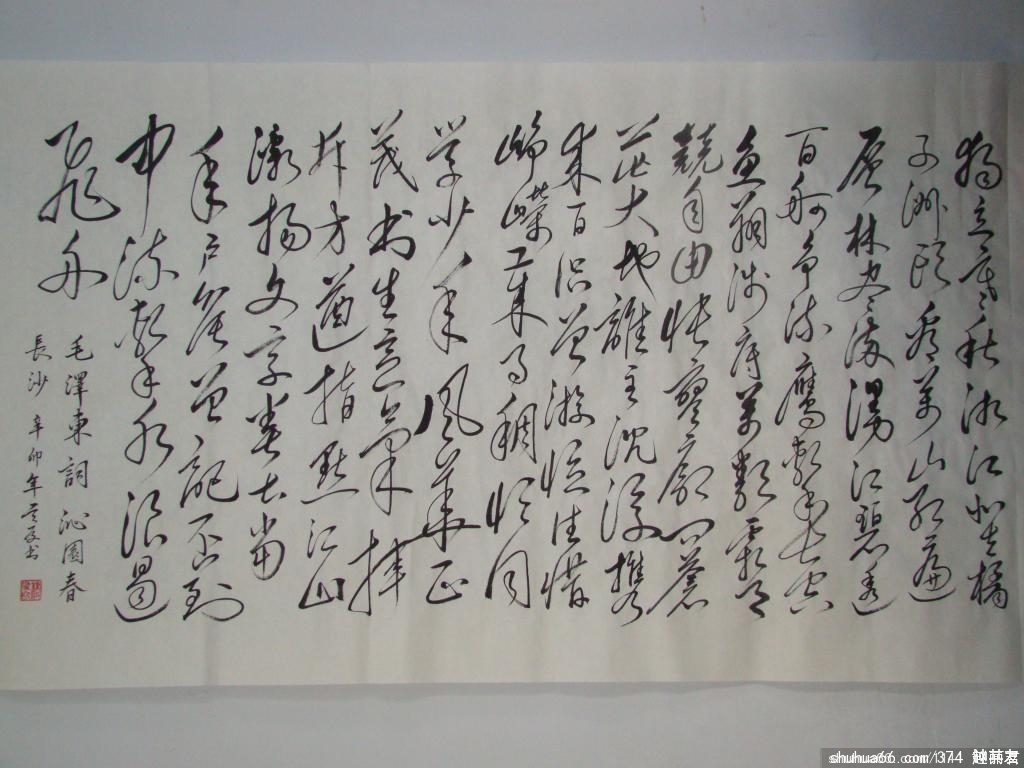 獨立寒秋湘江北去橘
子洲頭看萬山紅遍
层林盡染漫江碧透
百舸争流鹰擊長空
鱼翔浅底萬類霜天
競自由怅寥廓问蒼
茫大地誰主沉浮携
来百侣曾游忆往惜
峥嵘岁月稠恰同
学少年风華正
茂书生意氣揮
斥方遒指點江山
激揚文字粪土當
年户侯曾記否到
中流擊水浪遏
飞舟
毛澤東詞 沁園春
長沙 辛卯年 书
shuhua66.com/1374